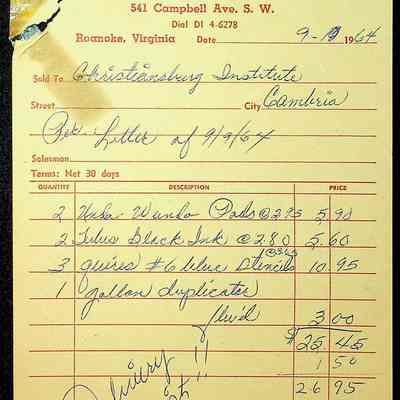 541 Campbell Ave. S. W.
Dial DI 4-6278
Roanoke, Virginia Date 9- 1964
Sold To Christiansburg Institute
Street City Cambria
Per Letter of 9/9/64
Salesman
Terms: Net 30 days
QUANTITY DESCRIPTION PRICE
2 Pads @ 2.95 5.90
2 Tubes Black Ink @ 2.80 5.60
3 quires #6 blue Stencils @3.65 10.95
1 gallon duplicator
fluid 3.00
$ 25 45
1 50
26 95
Delivery